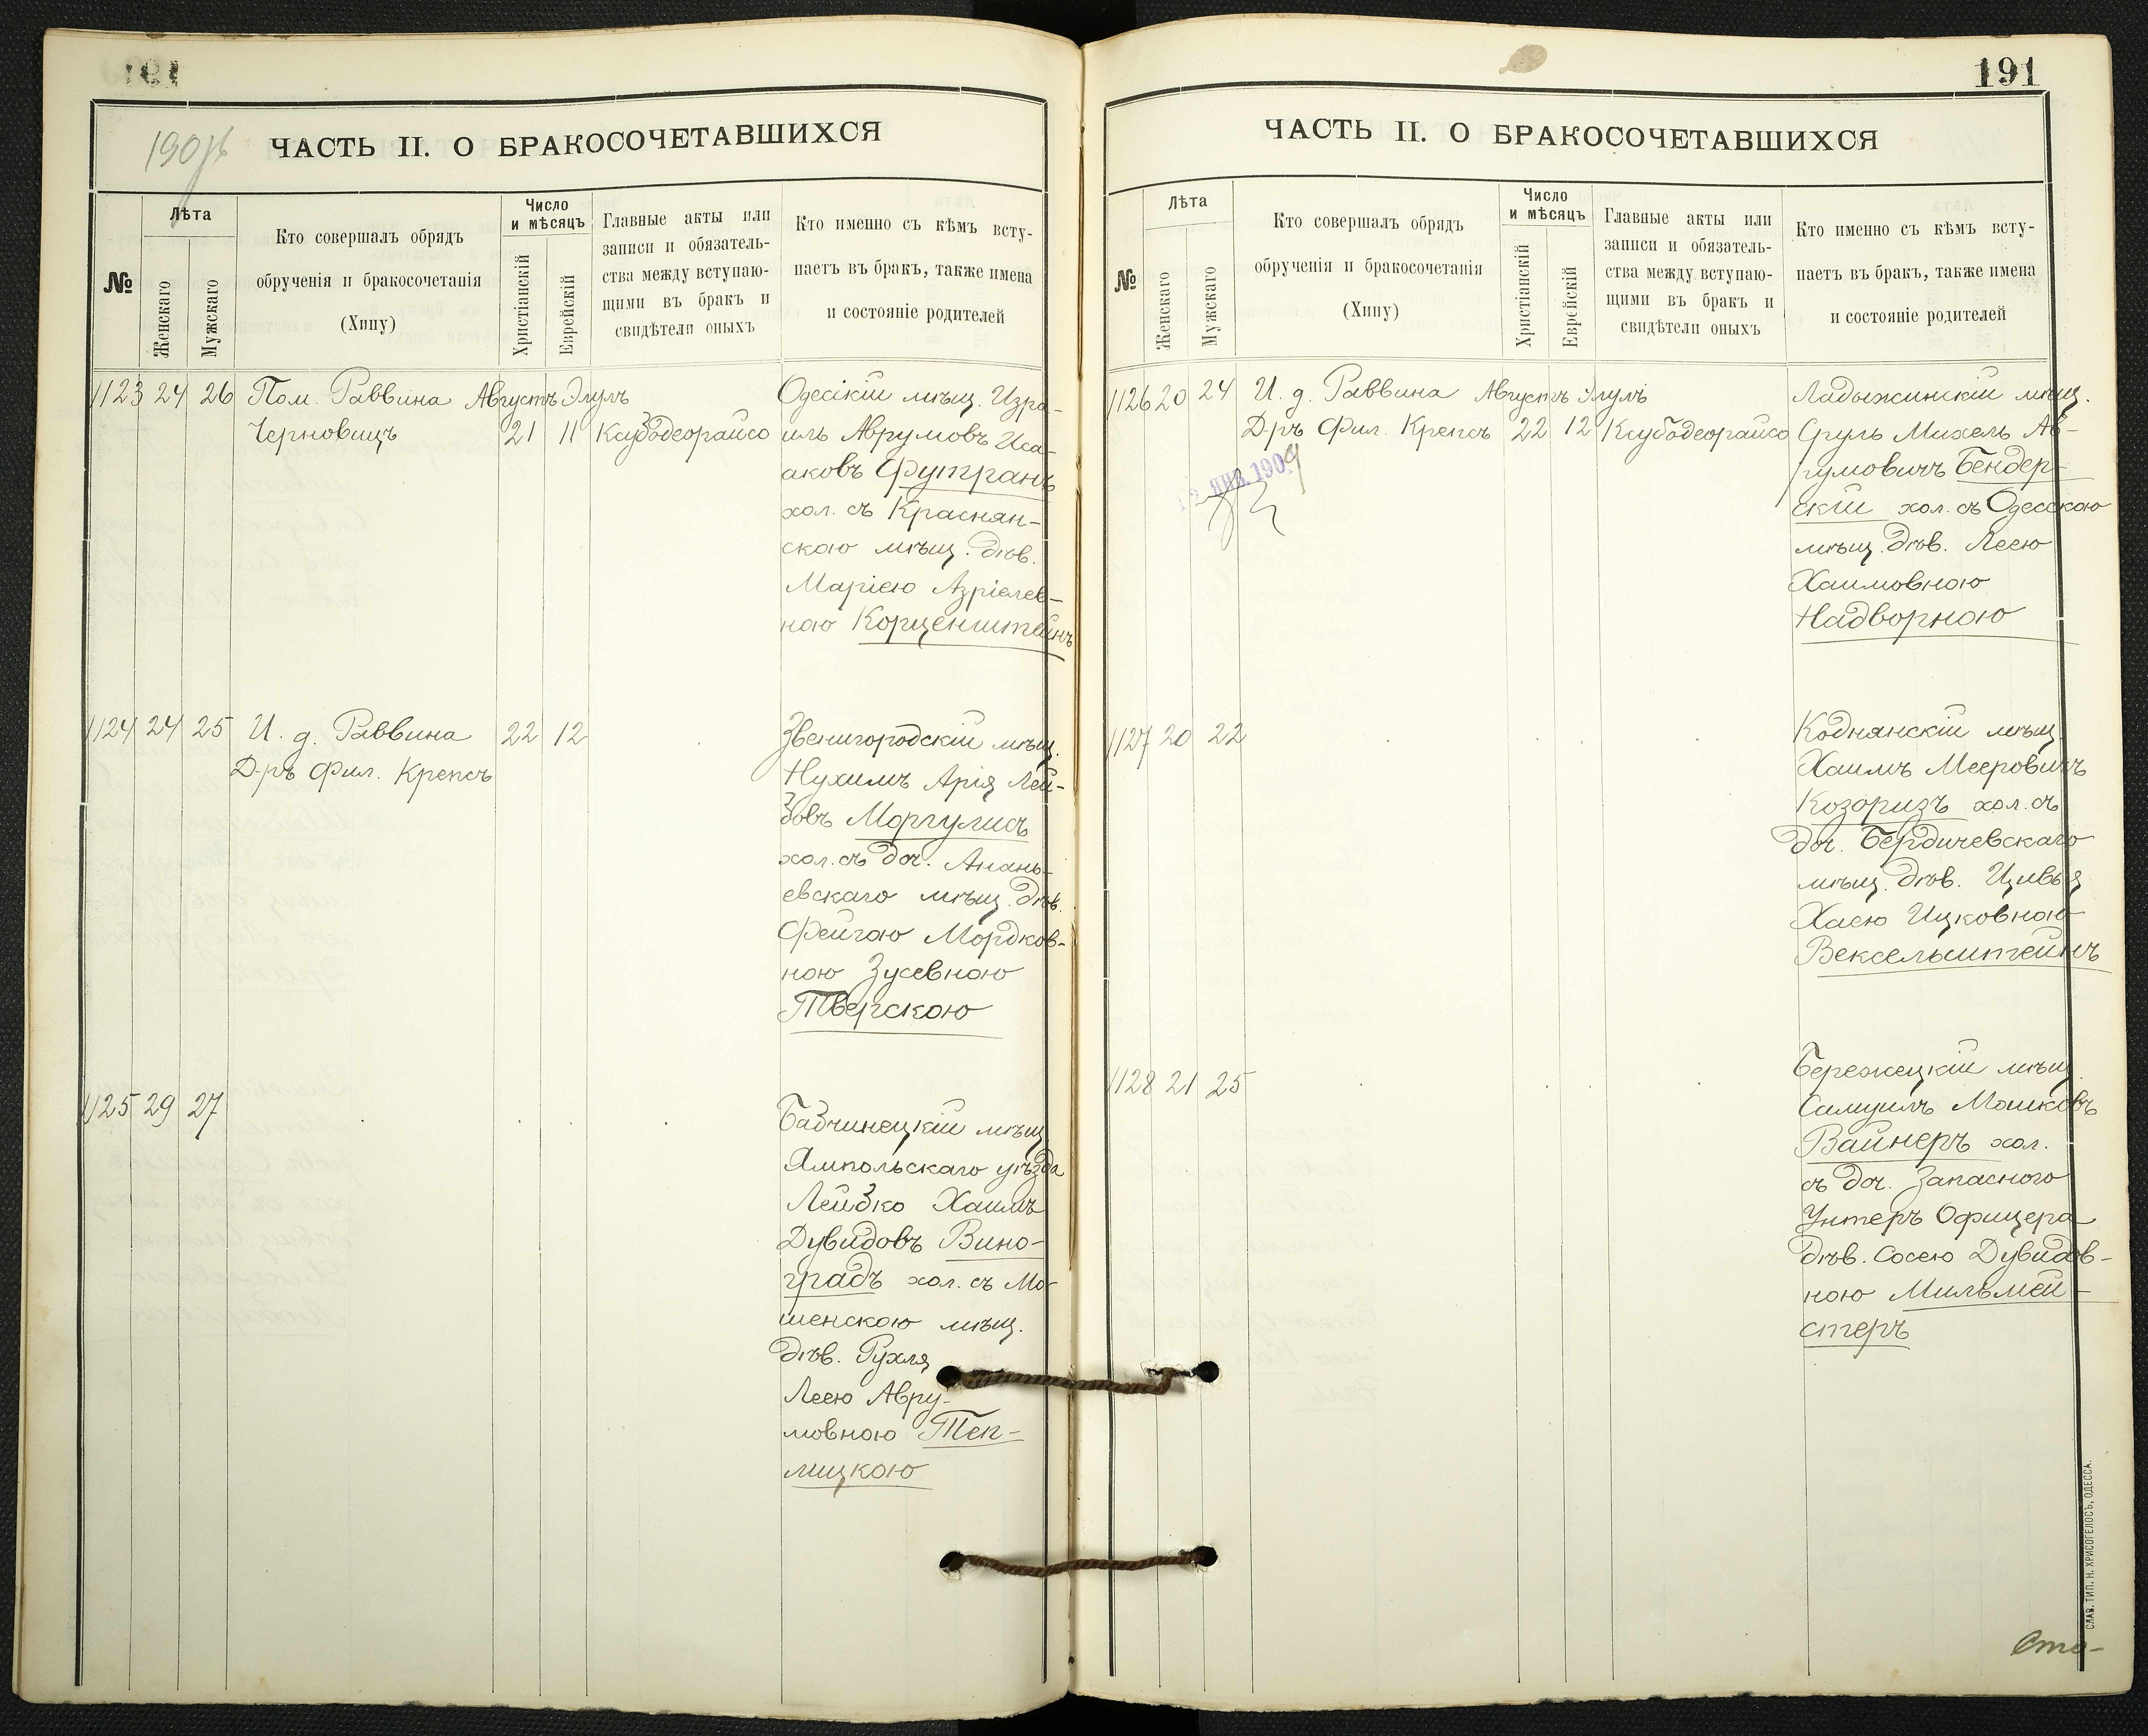 ЧАСТЬ II. О БРАКОСОЧЕТАВШИХСЯ
№
Лѣта
Женскаго
Мужскаго
Кто совершалъ обрядъ
обрученія и бракосочетанія
(Хипу)
Число
и мѣсяцъ
Христіанскій
Еврейскій
Главные акты или
записи и обязатель-
ства между вступаю-
щими въ бракъ и
свидѣтели оныхъ
Кто именно съ кѣмъ всту-
паетъ въ бракъ, также имена
и состояніе родителей
1123 24 26 Пом. Раввина Августъ Элулъ
Черновицъ 21 11 Ксубодеорайсо
Одесскій мѣщ. Изра-
иль Аврумовъ Иса-
аковъ Футранъ
хол. съ Краснян-
скою мѣщ. дѣв.
Маріею Азріелев-
ною Корценштейнъ
1124 24 25 И. д. Раввина 22 12
Д-ръ Фил. Крепсъ
Звенигородскій мѣщ.
Нухимъ Арія Лей-
зовъ Моргулисъ
хол. съ доч. Анань-
евскаго мѣщ. дѣв.
Фейгою Мордков-
ною Зусевною
Тверскою
1125 29 27
Бабчинецкій мѣщ.
Ямпольскаго уѣзда
Лейзко Хаимъ
Дувидовъ Вино-
градъ хол. съ Мо-
шенскою мѣщ.
дѣв. Рухля
Леею Авру-
мовною Теп-
лицкою
191
ЧАСТЬ II. О БРАКОСОЧЕТАВШИХСЯ
№
Лѣта
Женскаго
Мужскаго
Кто совершалъ обрядъ
обрученія и бракосочетанія
(Хипу)
Число
и мѣсяцъ
Христіанскій
Еврейскій
Главные акты или
записи и обязатель-
ства между вступаю-
щими въ бракъ и
свидѣтели оныхъ
Кто именно съ кѣмъ всту-
паетъ въ бракъ, также имена
и состояніе родителей
1126 20 24 И. д. Раввина Августъ Элулъ
Д-ръ Фил. Крепсъ 22 12 Ксубодеорайсо
Ладыжинскій мѣщ.
Сруль Михель Ав-
румовичъ Бендер-
скій хол. съ Одесскою
мѣщ. дѣв. Леею
Хаимовною
Надворною
1127 20 22
Коднянскій мѣщ.
Хаимъ Мееровичъ
Козоризъ хол. съ
доч. Бердичевскаго
мѣщ. дѣв. Цивья
Хаею Ицковною
Вексельштейнъ
1128 21 25
Бережецкій мѣщ.
Самуилъ Мошковъ
Вайнеръ хол.
съ доч. Запасного
Унтеръ Офицера
дѣв. Сосею Дувидов-
ною Мильмей-
стеръ
Сто-
СЛАВ. ТИП. Н. ХРИСОГЕЛОСЪ, ОДЕССА.